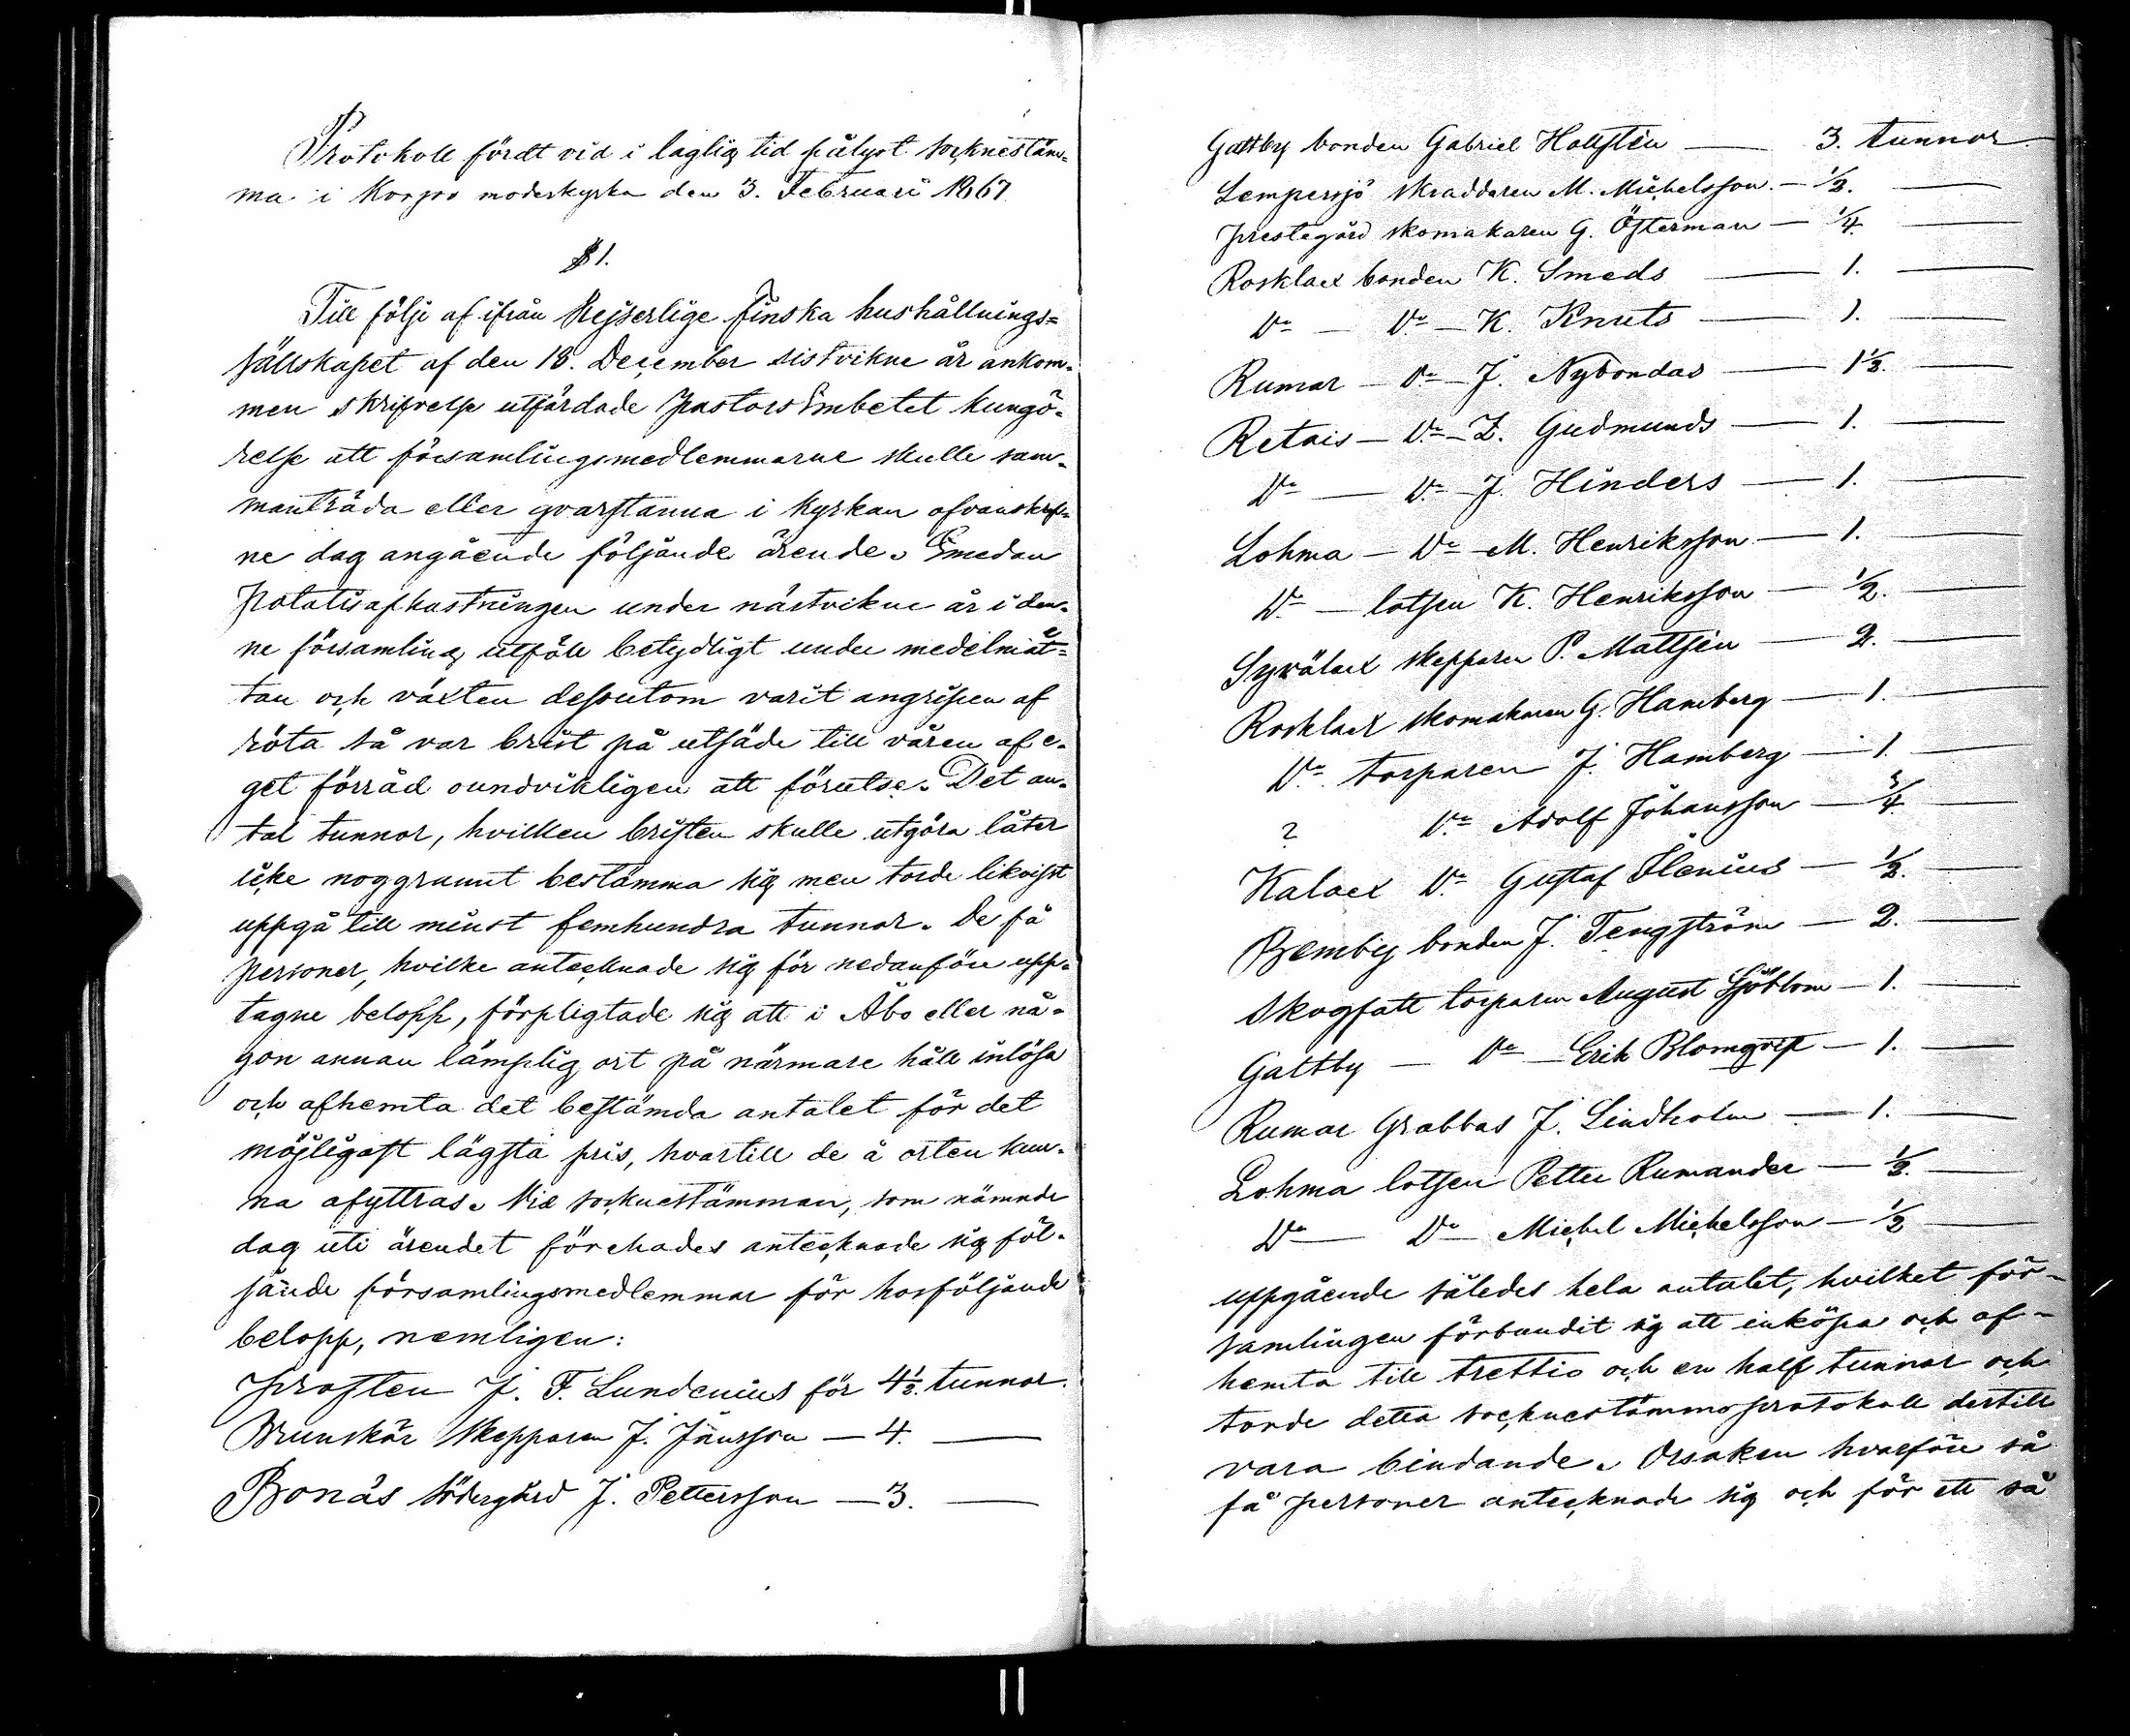 Protokoll fördt vid i laglig tid pålyst socknestäm-
ma i Korpo moderkyrka den 3. Februari 1867.
§ 1.
Till följe af ifrån Kejserlige finska hushållnings=
sällskapet af den 18. December sistvikne år ankom-
men skrifvelse utfärdade Pastors Embetet kungö-
relse att församlingsmedlemmarne skulle sam-
manträda eller qvarstanna i kyrkan ofvanskrif-
ne dag angående följande ärende. Emedan
Potatisafkastningen under nästvikne år i den-
ne församling utföll betydligt under medelmåt-
tan och växten dessutom varit angripen af
röta så var brist på utsäde till våren af e-
get förråd oundvikligen att förutse. Det an-
tal tunnor, hvilken bristen skulle utgöra låter
icke noggrannt bestämma sig men torde likvisst
uppgå till minst femhundra tunnor. De få
personer, hvilke antecknade sig för nedanföre upp-
tagne belopp, förpligtade sig att i Åbo eller nå-
gon annan lämplig ort på närmare håll inlösa
och afhemta det bestämda antalet för det
möjligast lägsta pris, hvartill de å orten kun-
na afyttras. Vid socknestämman, som nämnde
dag uti ärendet förehades antecknade sig föl-
jande församlingsmedlemmar för hosföljande
belopp, nemligen:
Prosten J. F. Lundenius för 4 1/2. tunnor.
Brunskär skepparen J. Jansson — 4. —
Bonäs södergård J. Pettersson — 3. —
Galtby bonden Gabriel Hollsten — 3. tunnor
Lempersjö skraddaren M. Michelsson. — 1/2. —
Prestegård skomakaren G. Österman — 1/4. —
Rosklax bonden K. Smeds — 1. —
Do — Do — K. Knuts — 1. —
Rumar — Do — J. Nybondas — 1 1/2. —
Retais — Do — Z. Gudmunds — 1. —
Do — Do — J. Hinders — 1. —
Lohma — Do — M. Henriksson — 1. —
Do — lotsen K. Henriksson — 1/2. —
Syvälax skepparen P. Mattsén — 2. —
Rosklax skomakaren G. Hamberg — 1. —
Do torparen J. Hamberg — 1. —
? Do Adolf Johansson — 3/4. —
Kalax Do Gustaf Ilenius — 1/2. —
Bemby bonden J. Tengström — 2. —
Skogsatt torparen August Sjöblom — 1. —
Galtby — Do — Erik Blomqvist — 1. —
Rumar Grabbas J. Lindholm — 1. —
Lohma lotsen Petter Rumander — 1/2. —
Do — Do Michel Michelsson — 1/2 —
uppgående således hela antalet, hvilket för-
samlingen förbundit sig att inköpa och af-
hemta till trettio och en half tunnor och
torde detta socknestämmoprotokoll dertill
vara bindande. Orsaken hvarföre så
få personer antecknade sig och för ett så